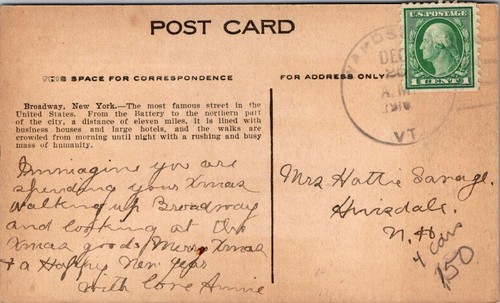 POST CARD
U.S. POSTAGE
1 CENT 1
DEC
A.M.
VT
THIS SPACE FOR CORRESPONDENCE
FOR ADDRESS ONLY
Broadway, New York.—The most famous street in the
United States. From the Battery to the northern part
of the city, a distance of eleven miles, it is lined with
business houses and large hotels, and the walks are
crowded from morning until night with a rushing and busy
mass of humanity.
Immagine you are
spending your Xmas
walking up Broadway
and looking at the
Xmas goods. Merry Xmas
& a Happy New Year
with love Annie
Mrs Hattie Savage.
Hinsdale.
N. H.
4 Cars
150